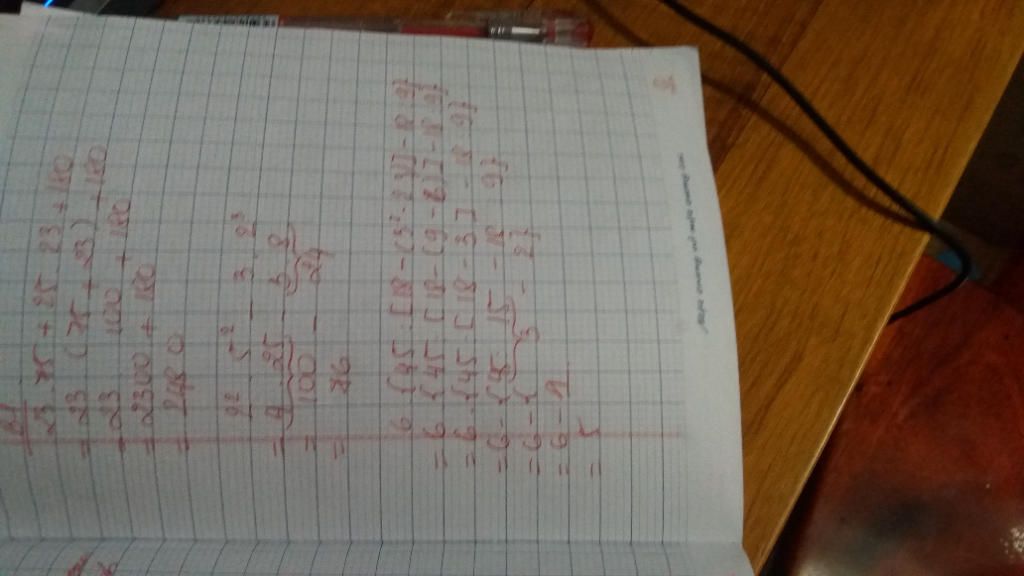 B1
23 . 75 + 25 . 23 + 180
= 23 . (75 + 25) + 180
= 23 . 100 + 180
= 2300 + 180
= 2480
2² . 5² - 3 . 2³
= 4 . 25 - 3 . 8
= 100 - 24
= 76
6 - {45 : [18 - (3² - 23)] - 18 : 9}
= 6 - {45 : [18 - (9 - 6)] - 18 : 9}
= 6 - {45 : [18 - 3] - 18 : 9}
= 6 - {45 : 15 - 18 : 9}
= 6 - { 3 - 2}
= 6 - 1
= 5